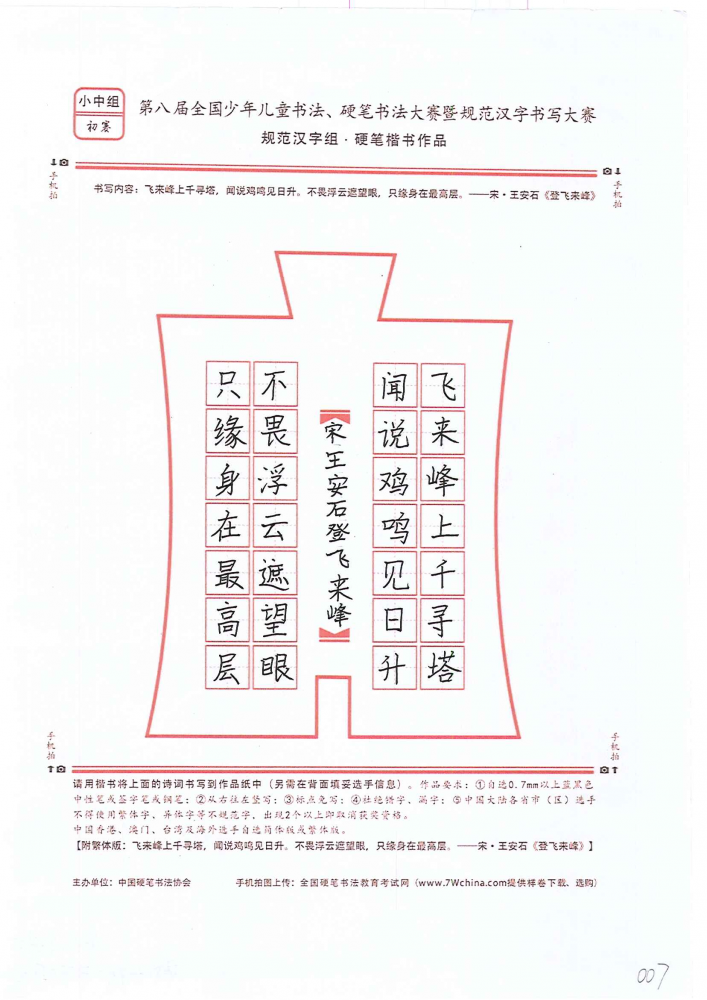 小中组
初赛
第八届全国少年儿童书法、硬笔书法大赛暨规范汉字书写大赛
规范汉字组·硬笔楷书作品
手机拍
手机拍
书写内容：飞来峰上千寻塔，闻说鸡鸣见日升。不畏浮云遮望眼，只缘身在最高层。——宋·王安石《登飞来峰》
飞来峰上千寻塔
闻说鸡鸣见日升
宋王安石登飞来峰
不畏浮云遮望眼
只缘身在最高层
手机拍
手机拍
请用楷书将上面的诗词书写到作品纸中（另需在背面填妥选手信息）。作品要求：①自选0.7mm以上蓝黑色
中性笔或签字笔或钢笔；②从右往左竖写；③标点免写；④杜绝错字、漏字；⑤中国大陆各省市（区）选手
不得使用繁体字、异体字等不规范字，出现2个以上即取消获奖资格。
中国香港、澳门、台湾及海外选手自选简体版或繁体版。
【附繁体版：飞来峰上千寻塔，闻说鸡鸣见日升。不畏浮云遮望眼，只缘身在最高层。——宋·王安石《登飞来峰》】
主办单位：中国硬笔书法协会 手机拍图上传：全国硬笔书法教育考试网（www.7Wchina.com提供样卷下载、选购）
007